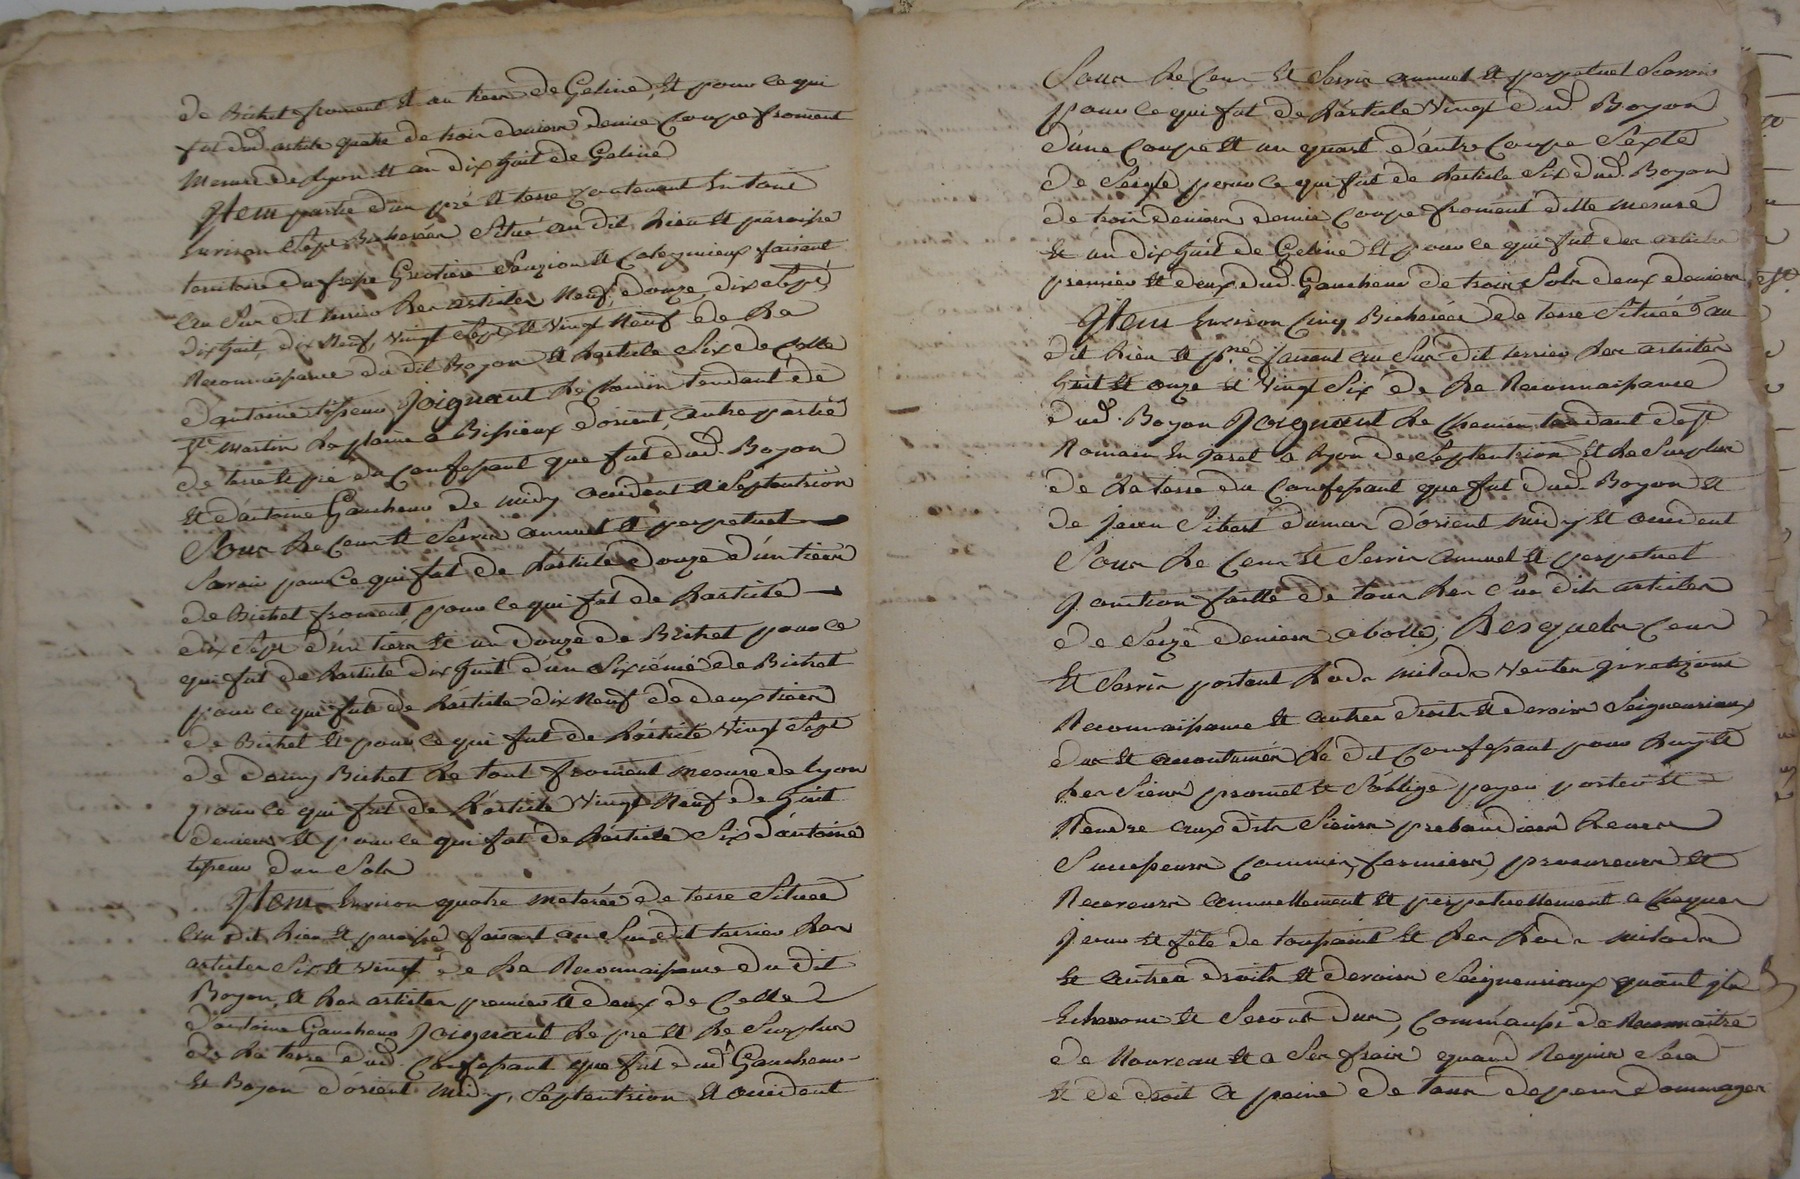 de Bichet froment et au tiers de Geline, Et pour ce qui
fut dud. article quatre de trois deniers demie Coupe froment
Mesure de Lyon et un dix huit de Geline
Item partie d'un pré et terre contenant En tout
Environ Sept Bicherées Situé au dit Lieu et paroisse
territoire du et faisant
au Sus dit terrier Les articles Neuf, douze, dix Sept,
dix huit, dix Neuf, Vingt Sept et Vingt Neuf de La
Reconnaissance du dit Boyon et Larticle Six de Celle
d'antoine tisseur Joignant Le Chemin tendant de
St. Martin La plaine a Bissieux d'orient, autre partie
de terre et pré du Confessant que fut dud. Boyon
Et d'antoine Gaucheur de midy occident et Septentrion
Sous Le Cens et Servis annuel et perpetuel
Savoir pour Ce qui fut de L'article douze d'un tiers
de Bichet froment, pour ce qui fut de Larticle
dix Sept d'un tiers et un douze de Bichet pour ce
qui fut de Larticle dix huit d'un Sixiéme de Bichet
pour ce qui fut de L'article dix Neuf de deux tiers
de Bichet Et pour ce qui fut de L'article Vingt Sept
de demy Bichet Le tout froment mesure de Lyon
pour ce qui fut de L'article Vingt Neuf de huit
deniers Et pour ce qui fut de L'article Six d'antoine
tisseur d'un Sols
Item Environ quatre meterées de terre Situeé
Au dit Lieu et paroisse faisant au Sus dit terrier Les
articles Six et Vingt de La Reconnaissance du dit
Boyon, et Les articles premier et deux de Celle
d'antoine Gaucheur Joignant Le pré et Le Surplus
de La terre dud. Confessant que fut dud. Gaucheur
Et Boyon d'orient Midy, Septentrion Et occident
Sous Le Cens Et Servis annuel et perpetuel Scavoir
pour ce qui fut de L'article Vingt dud. Boyon
d'une Coupe et un quart d'autre Coupe
de Seigle pour ce qui fut de Larticle Six dud. Boyon
de trois deniers demie Coupe froment ditte mesure
Et un dix huit de Geline Et pour ce qui fut des articles
premier et deux dud. Gaucheur de trois Sols deux deniers
Item Environ Cinq Bicherées de terre Situeé au
dit Lieu et pse. faisant au Sus dit terrier Les articles
huit et onze et Vingt Six de La Reconnaissance
dud. Boyon Joignant Le Chemin tendant de St
Romain En Jarét a Lyon de Septentrion Et Le Surplus
de La terre du Confessant que fut dud. Boyon et
de jean Sibert dumas d'orient midy et occident
Sous Le Cens Et Servis Annuel Et perpetuel
Jonction faitte de tous Les Sus dits articles
de Seize deniers obolle, Lesquels Cens
Et Servis portant Lods milods Ventes
Reconnaissance Et autres droits et devoirs Seigneuriaux
dus et accoutumés Le dit Confessant pour Luy et
Les Siens promet et S'oblige payer porter Et
Rendre aux dits Sieurs prebandiers Leurs
Successeurs Commis, fermiers, procureurs et
Receveurs annuellement et perpetuellement a Chaque
Jour et fête de toussaint Et Les Lods milods
Et autres droits et devoirs Seigneuriaux quand ils
Echerront Et Seront dus, Comm'aussi de Reconnaitre
de Nouveau Et a Ses frais quand Requis Sera
Et de droit a peine de tous depens dommages